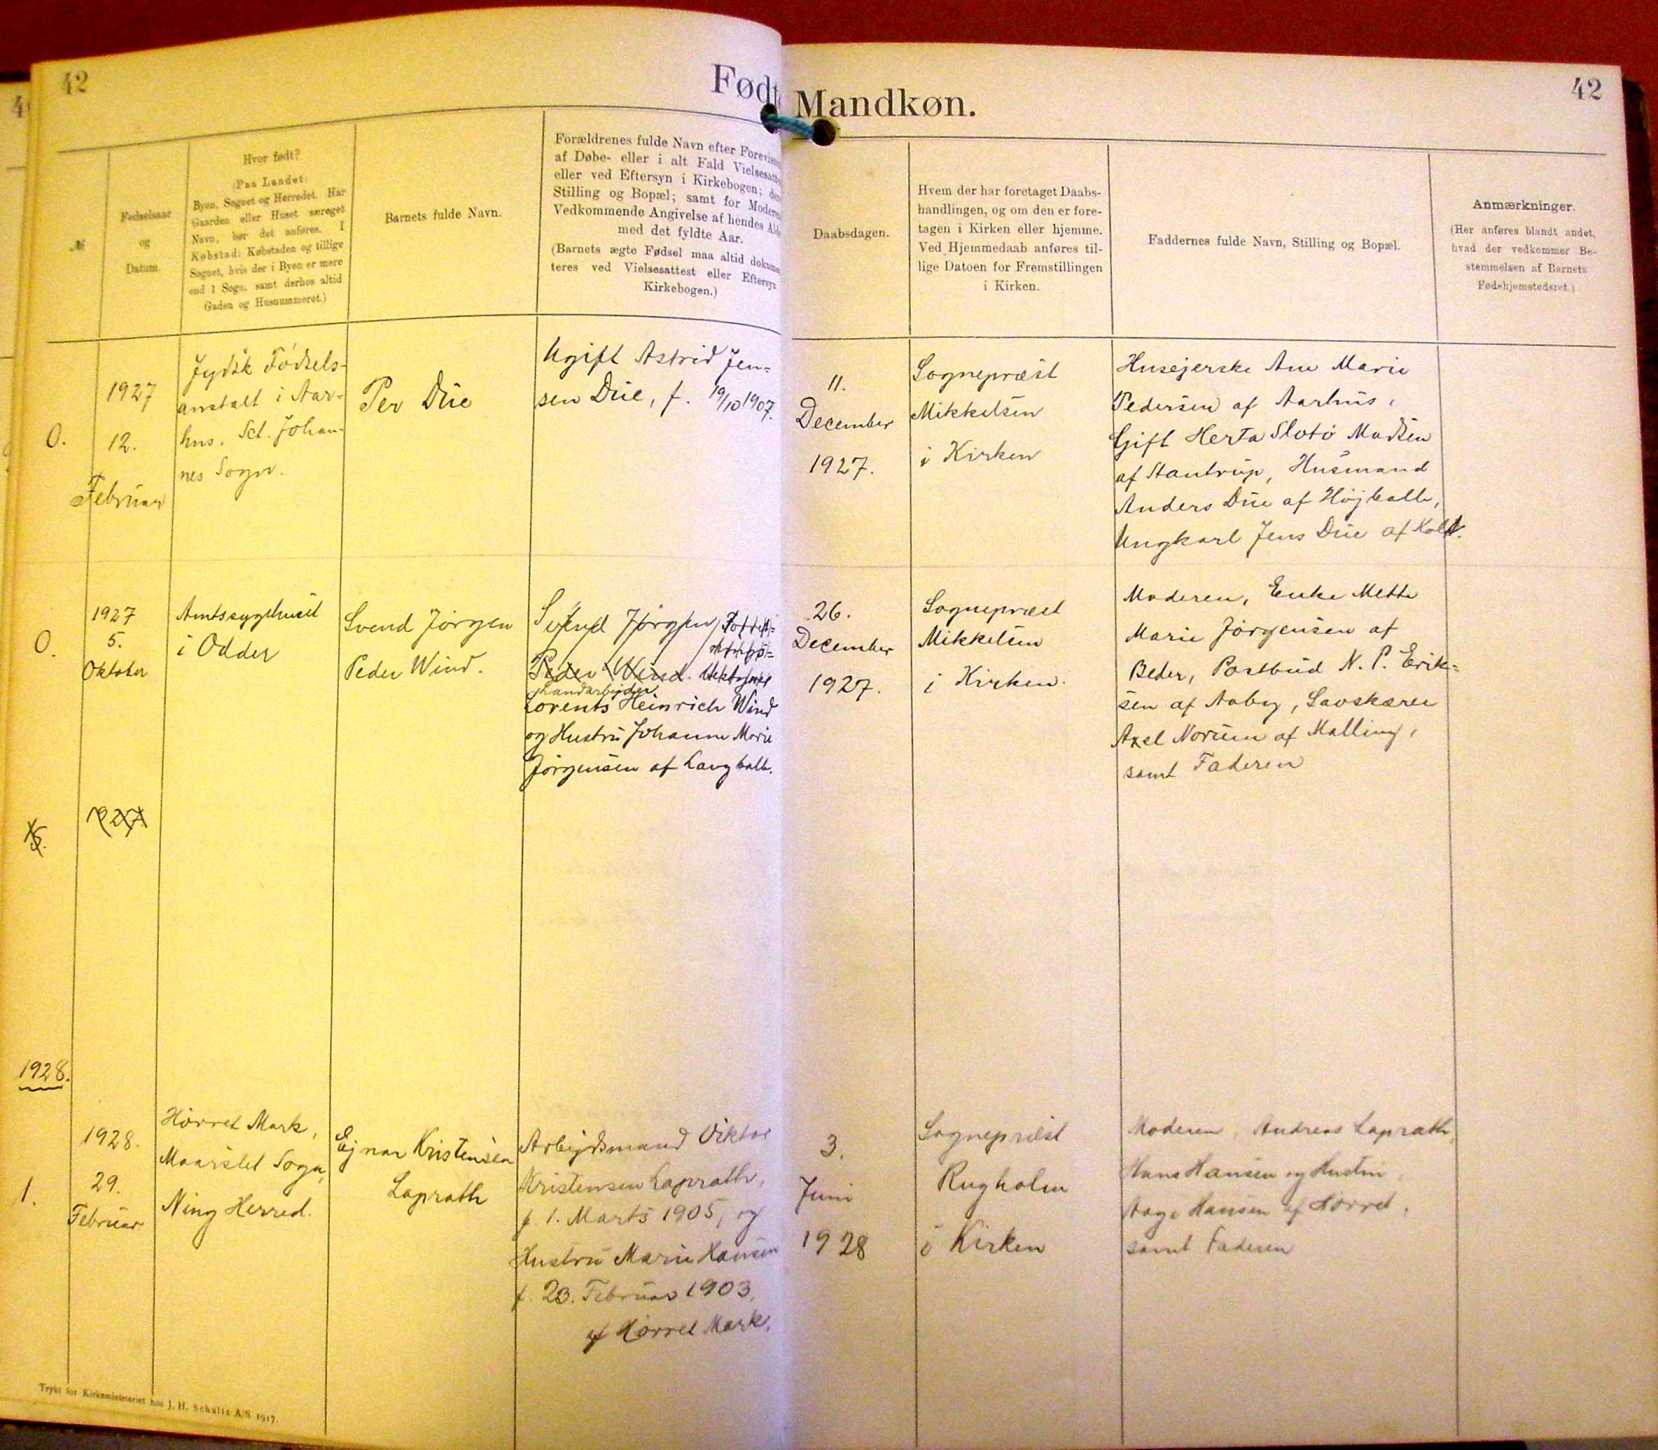 42
Født
Mandkøn.
42
№
Fødselsaar
og
Datum.
Hvor født?
(Paa Landet:
Byen, Sognet og Herredet. Har
Gaarden eller Huset særeget
Navn, bør det anføres. I
Købstad: Købstaden og tillige
Sognet, hvis der i Byen er mere
end 1 Sogn, samt derhos altid
Gaden og Husnummeret.)
Barnets fulde Navn.
Forældrenes fulde Navn efter
af Døbe- eller i alt Fald
eller ved Eftersyn i Kirkebogen;
Stilling og Bopæl; samt for
Vedkommende Angivelse af hendes
med det fyldte Aar.
(Barnets ægte Fødsel maa altid
teres ved Vielsesattest eller Eftersyn
Kirkebogen.)
Daabsdagen.
Hvem der har foretaget Daabs-
handlingen, og om den er fore-
tagen i Kirken eller hjemme.
Ved Hjemmedaab anføres til-
lige Datoen for Fremstillingen
i Kirken.
Faddernes fulde Navn, Stilling og Bopæl.
Anmærkninger.
(Her anføres blandt andet,
hvad der vedkommer Be-
stemmelsen af Barnets
Fødehjemstedsret.)
0.
1927
12.
Februar
Jydsk Fødsels-
anstalt i Aar-
hus. Sct. Johan-
nes Sogn.
Per Due
Ugift Astrid Jen-
sen Due, f. 19/10 1907.
11.
December
1927.
Sognepræst
Mikkelsen
i Kirken
Husejerske Ane Marie
Pedersen af Aarhus,
Gift Herta Slotø Madsen
af Stautrup, Husmand
Anders Due af Højballe,
Ungkarl Jens Due af Kolt.
0.
1927
5.
Oktober
Amtssygehuset
i Odder
Svend Jørgen
Peder Wind.
Svend Jørgen
Peder Wind.
Landarbejder
Lorents Heinrich Wind
og Hustru Johanne Marie
Jørgensen af Langballe.
26.
December
1927.
Sognepræst
Mikkelsen
i Kirken.
Moderen, Enke Mette
Marie Jørgensen af
Beder, Postbud N. P. Erik-
sen af Aaby, Savskærer
Axel Norum af Malling,
samt Faderen
1927
1928.
1.
1928.
29.
Februar
Hørret Mark,
Maarslet Sogn,
Ning Herred.
Ejnar Kristensen
Laprath
Arbejdsmand Viktor
Kristensen Laprath,
f. 1. Marts 1905, og
Hustru Marie Hansen
f. 23. Februar 1903,
af Hørret Mark.
3.
Juni
1928
Sognepræst
Rugholm
i Kirken
Moderen, Andreas Laprath,
Hans Hansen og Hustru,
Aage Hansen af Hørret,
samt Faderen
Trykt for Kirkeministeriet hos J. H. Schultz A/S 1917.